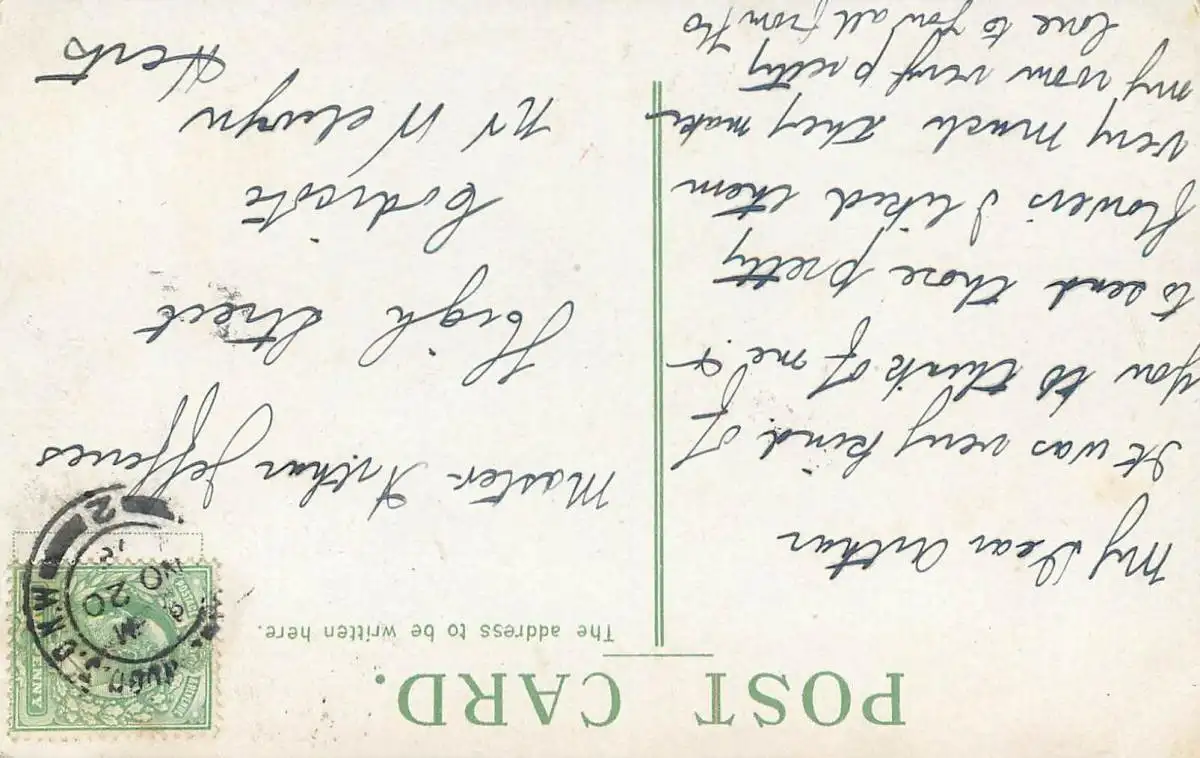 POST CARD.
The address to be written here.
My Dear Arthur
It was very kind of
you to think of me &
to send those pretty
flowers I liked them
very much they make
my room very pretty
love to you all from Flo
Master Arthur Jefferies
High Street
Codicote
Nr Welwyn
Herts
NO 20
2